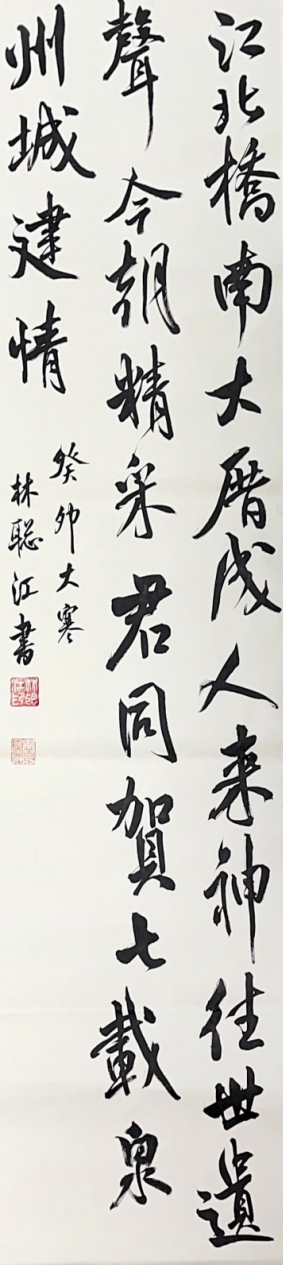 江北橋南大厝成人来神往世遺
聲今朝精采君同賀七載泉
州城建情
癸卯大寒
林聪江書